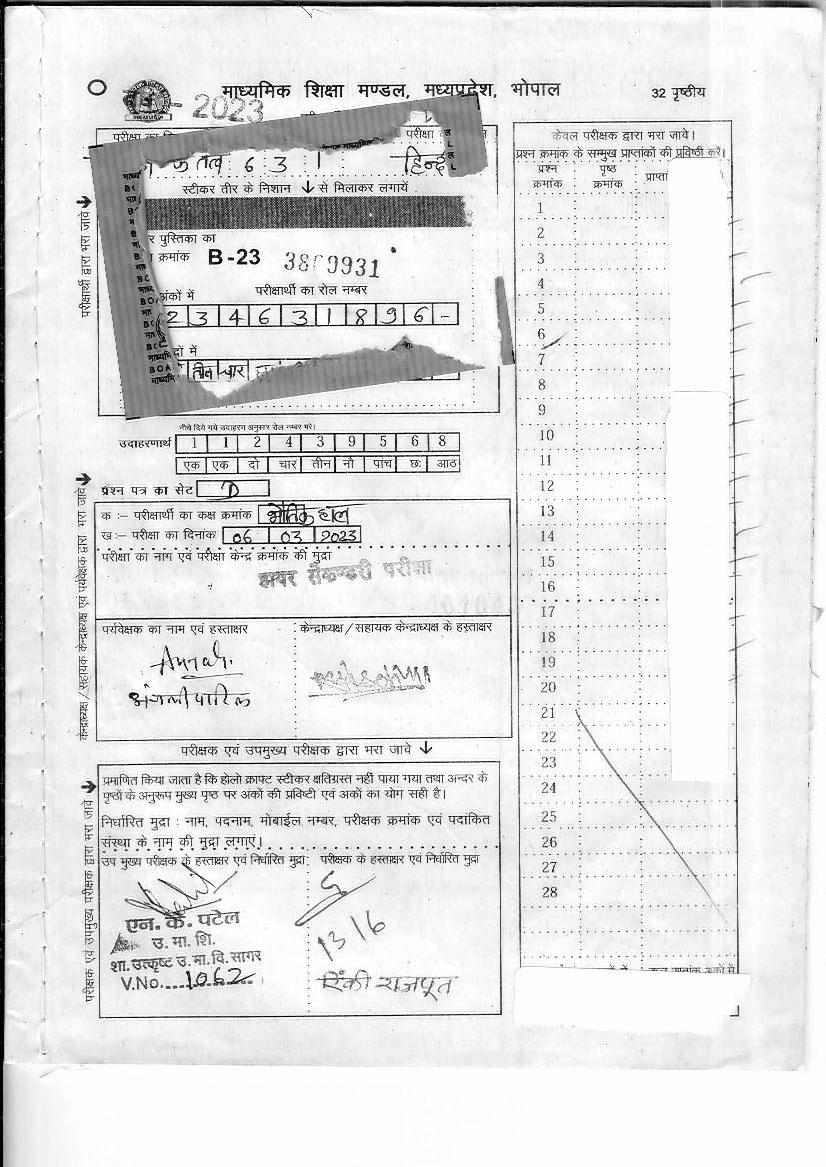 माध्यमिक शिक्षा मण्डल, मध्यप्रदेश, भोपाल
32 पृष्ठीय
- 2023
परीक्षा का
परीक्षा
तत्व 6 3 1
स्टीकर तीर के निशान ↓ से मिलाकर लगायें
पुस्तिका का
क्रमांक B-23
अंकों में
परीक्षार्थी का रोल नम्बर
2 3 4 6 3 1 8 9 6 -
दों में
तीन चार
नीचे दिये गये उदाहरण अनुसार रोल नम्बर भरें।
उदाहरणार्थ 1 1 2 4 3 9 5 6 8
एक एक दो चार तीन नौ पांच छः आठ
प्रश्न पत्र का सेट D
क :– परीक्षार्थी का कक्ष क्रमांक
ख :– परीक्षा का दिनांक 06 03 2023
परीक्षा का नाम एवं परीक्षा केन्द्र क्रमांक की मुद्रा
हायर सेकण्डरी परीक्षा
पर्यवेक्षक का नाम एवं हस्ताक्षर
केन्द्राध्यक्ष / सहायक केन्द्राध्यक्ष के हस्ताक्षर
परीक्षक एवं उपमुख्य परीक्षक द्वारा भरा जावे ↓
प्रमाणित किया जाता है कि होलो क्राफ्ट स्टीकर क्षतिग्रस्त नहीं पाया गया तथा अन्दर के
पृष्ठों के अनुरूप मुख्य पृष्ठ पर अंकों की प्रविष्टी एवं अंकों का योग सही है।
निर्धारित मुद्रा : नाम, पदनाम, मोबाईल नम्बर, परीक्षक क्रमांक एवं पदांकित
संस्था के नाम की मुद्रा लगाएं।
उप मुख्य परीक्षक के हस्ताक्षर एवं निर्धारित मुद्रा:
परीक्षक के हस्ताक्षर एवं निर्धारित मुद्रा
एन. के. पटेल
उ. मा. शि.
शा. उत्कृष्ट उ. मा. वि. सागर
V.No. 1062
1316
रिंकी राजपूत
परीक्षार्थी द्वारा भरा जावे
केन्द्राध्यक्ष / सहायक केन्द्राध्यक्ष एवं पर्यवेक्षक द्वारा भरा जावे
परीक्षक एवं उपमुख्य परीक्षक द्वारा भरा जावे
केवल परीक्षक द्वारा भरा जाये।
प्रश्न क्रमांक के सम्मुख प्राप्तांकों की प्रविष्ठी करें।
प्रश्न क्रमांक
पृष्ठ क्रमांक
प्राप्तां
1
2
3
4
5
6
7
8
9
10
11
12
13
14
15
16
17
18
19
20
21
22
23
24
25
26
27
28